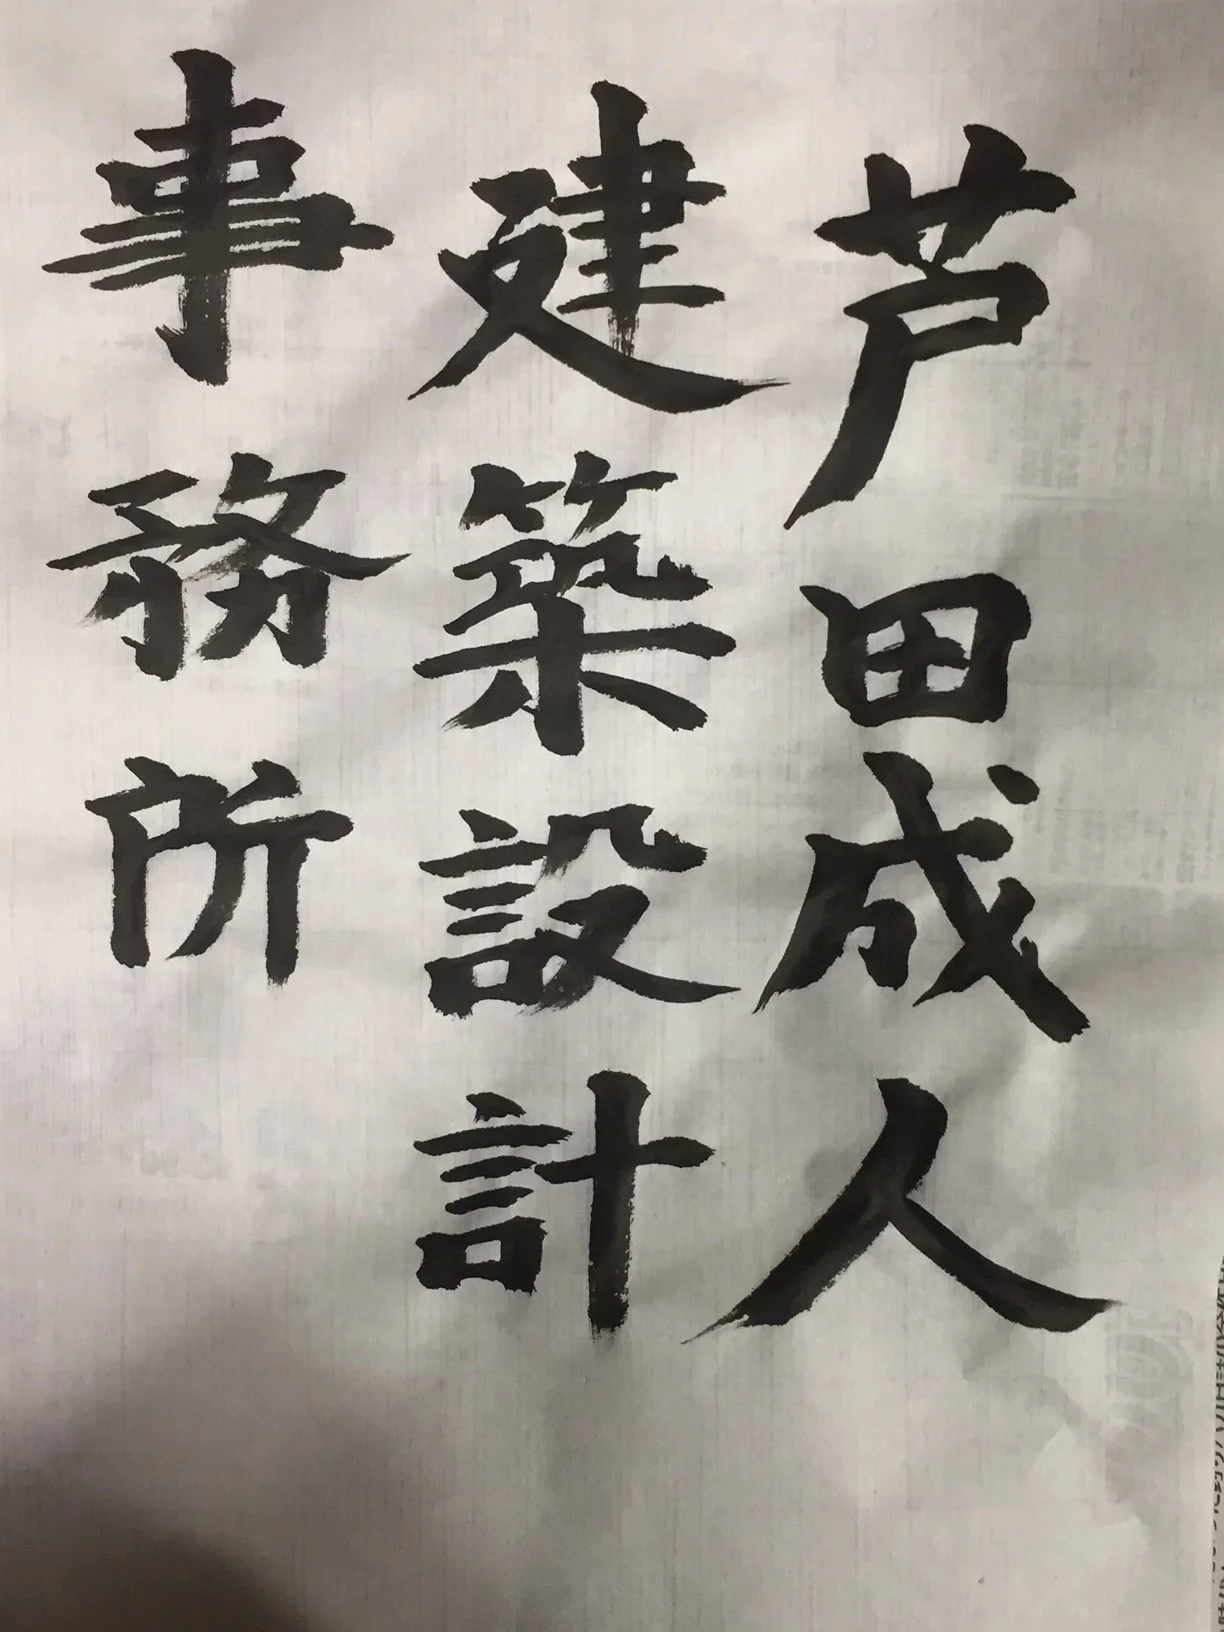 芦田成人
建築設計
事務所